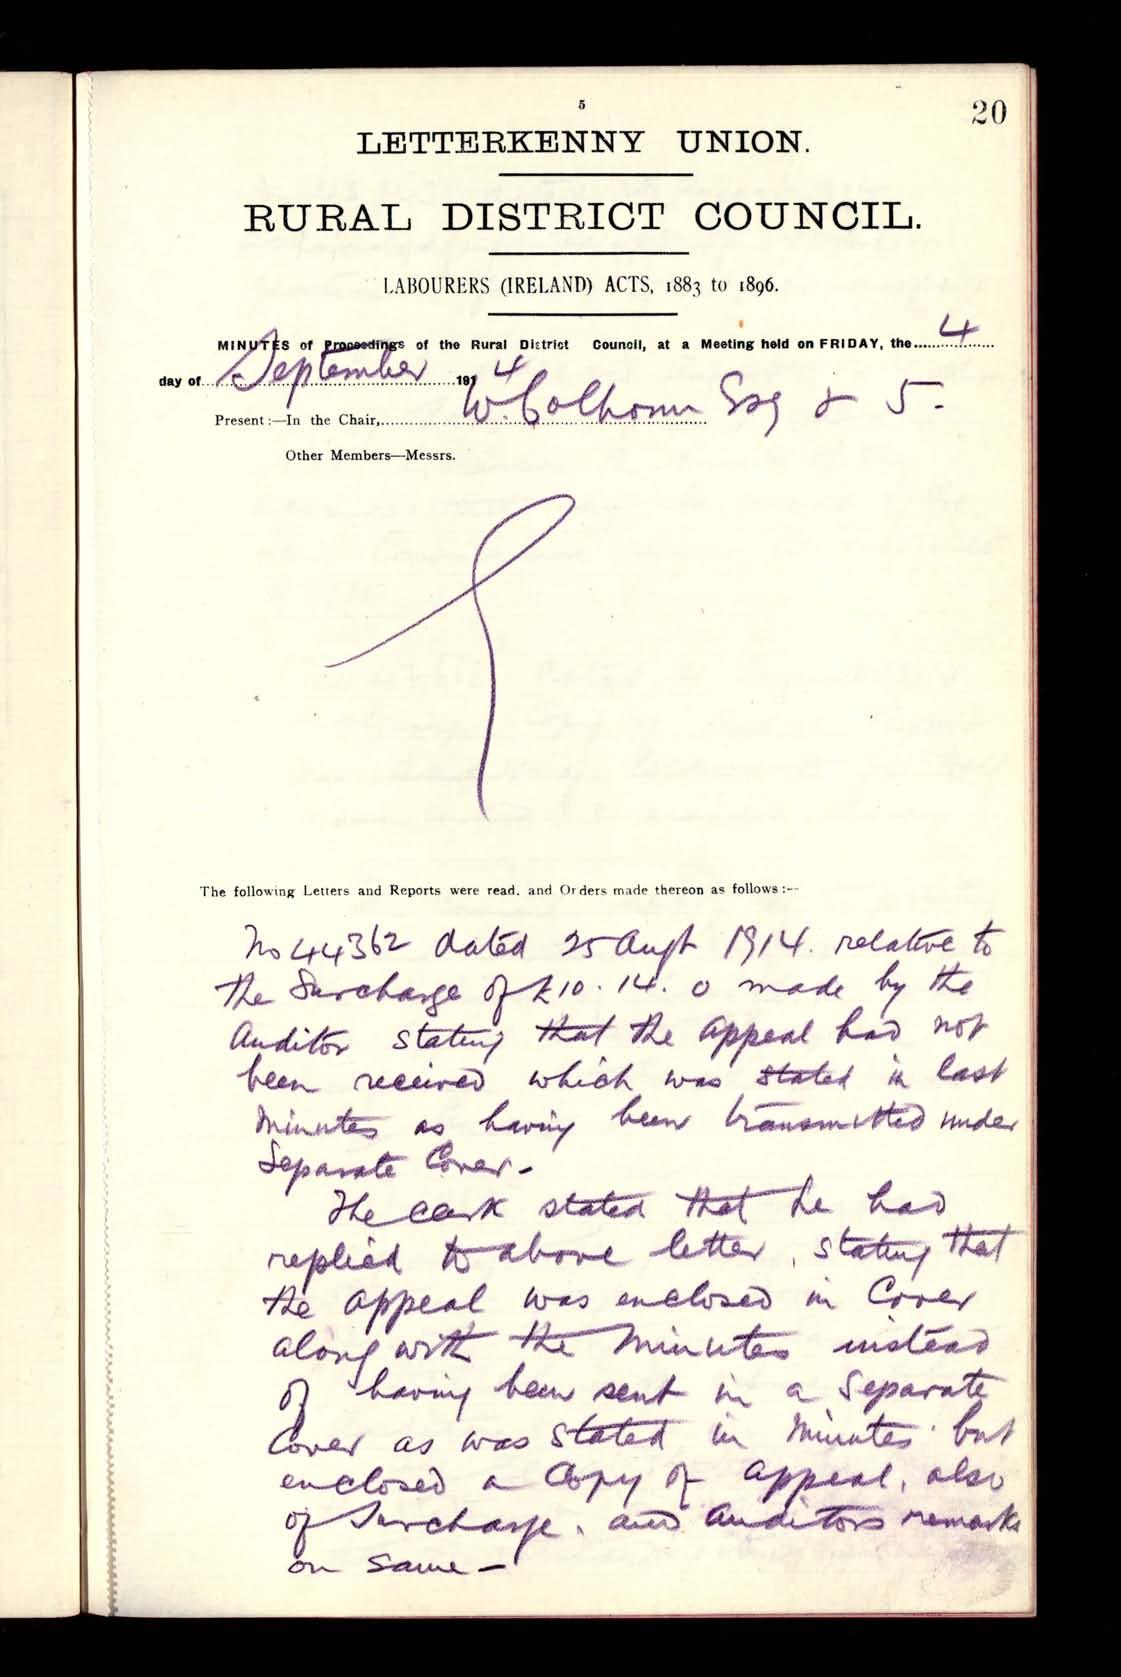 5
20
LETTERKENNY UNION.
RURAL DISTRICT COUNCIL.
LABOURERS (IRELAND) ACTS, 1883 to 1896.
MINUTES of Proceedings of the Rural District Council, at a Meeting held on FRIDAY, the 4
day of September 1914
Present:—In the Chair, W. Colhoun Esq & 5-
Other Members—Messrs.
The following Letters and Reports were read, and Orders made thereon as follows:—
No 44362 dated 25 Augt 1914. relative to
the Surcharge of £10. 14. 0 made by the
Auditor stating that the appeal had not
been received which was stated in last
Minutes as having been transmitted under
Separate Cover-
The clerk stated that he had
replied to above letter, stating that
the appeal was enclosed in Cover
along with the Minutes instead
of having been sent in a Separate
Cover as was stated in Minutes but
enclosed a Copy of appeal, also
of Surcharge, and Auditors remarks
on same -